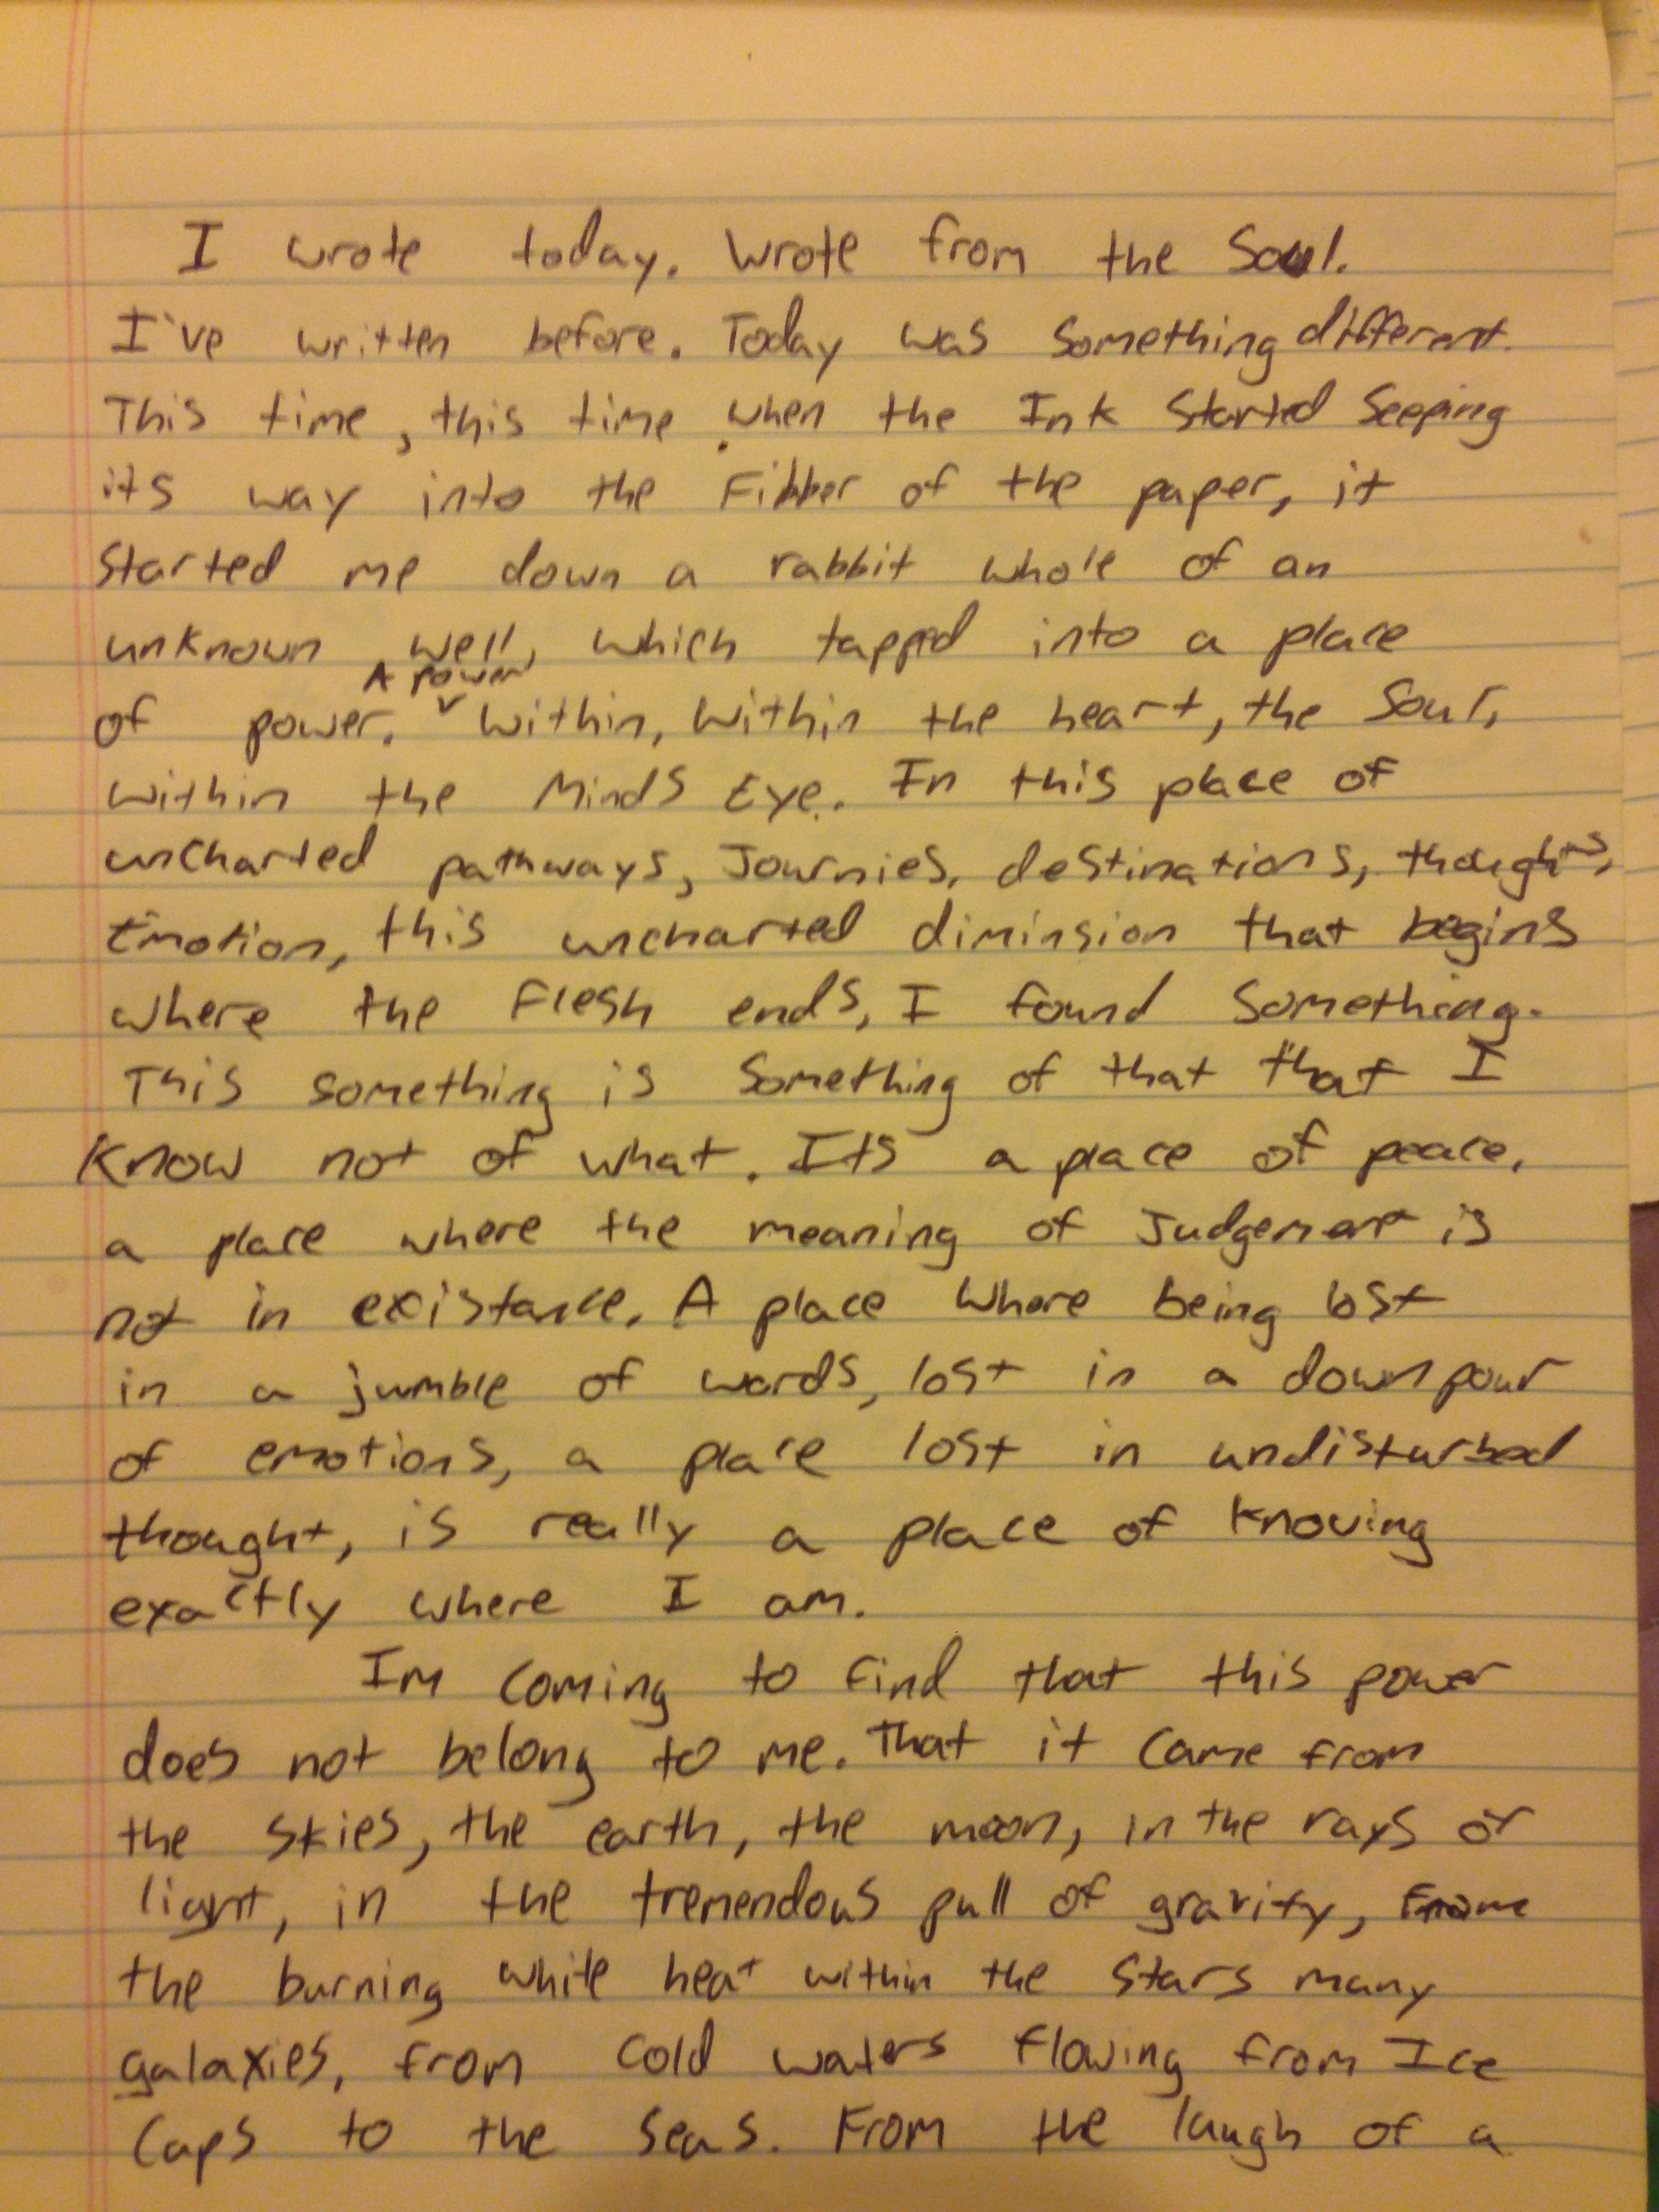 I wrote today. Wrote from the Soul.
I've written before. Today was Something different.
This time, this time when the Ink Started Seeping
its way into the Fibber of the paper, it
Started me down a rabbit whole of an
unknown well, which tapped into a place
A power
of power. Within, Within the heart, the Soul,
within the Minds Eye. In this place of
uncharted pathways, Journies, destinations, thoughts,
Emotion, this uncharted diminsion that begins
where the Flesh ends, I found Something.
This something is Something of that that I
Know not of what. Its a place of peace,
a place where the meaning of Judgement is
not in existance. A place Where being lost
in a jumble of words, lost in a downpour
of emotions, a place lost in undisturbed
thought, is really a place of Knowing
exactly where I am.
Im Coming to Find that this power
does not belong to me. That it Came from
the Skies, the earth, the moon, in the rays of
light, in the tremendous pull of gravity,
the burning white heat within the Stars many
galaxies, from Cold waters Flowing from Ice
Caps to the Seas. From the laugh of a